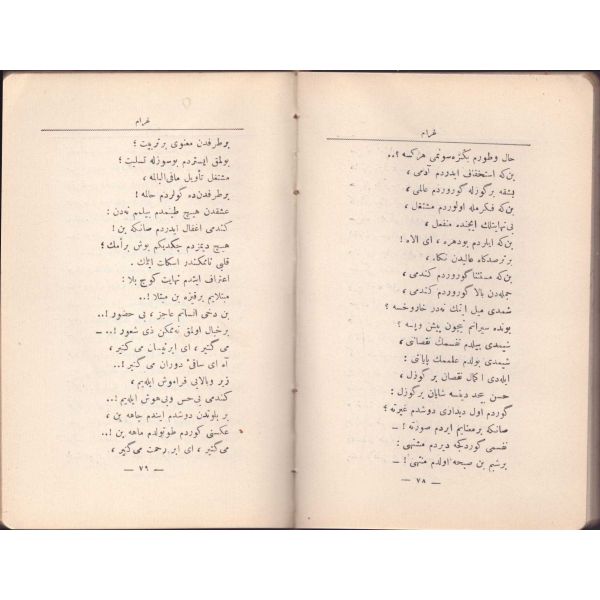 غرام
حال وطورم بگنزه‌سونمی هركسه ؟..
بن‌كه استخفاف ايدردم آدمی ،
بشقه برگوزله گوروردم عالمی ،
بن‌كه فكرمله اولوردم مشتغل ،
بی‌نهايتلك ايچنده منفعل ،
بن‌كه ايلردم بودهره ، ای الاه !
برترصدگاه عاليدن نگاه .
بن‌كه مستثنا گوروردم كندمی ،
جمله‌دن بالا گوروردم كندمی ،
شمدی ميل ايتمك نه‌در خاروخسه ؟
بونده سيرانم نيچون پيش وپسه ؟
شيمدی بيلدم نفسمك نقصانی ،
شيمدی بولدم علممك پايانی :
ايلدی اكمال نقصان بر گوزل ،
حسن بيحد دينسه شايان برگوزل :
گوردم اول ديداری دوشدم غيرته ؟
صانكه برمعنايم ايردم صورته ! ..
نفسمی گوردكجه ديردم مشتهی :
برشيم بن صبحه اولدم منتهی ! ــ
— ٧٨ —
غرام
برطرفدن معنوی برتربيت ؛
بولمق ايستردم بوسوزله تسليت ؛
مشتغل تأويل مافی‌البالمه ،
برطرفدن‌ده گولردم حالمه !
عشقدن هيچ طينمدم بيلم نه‌دن :
كندمی اغفال ايدردم صانكه بن !
هيچ ديمزدم چكديكم بوش برأمك ؛
قلبی ناممكندر اسكات ايتمك .
اعتراف ايتدم نهايت كوچ بلا :
مبتلايم برقيزه بن مبتلا ! ..
بن دخی انسانم عاجز ، بی حضور ! ..
برخيال اولمق نه‌ممكن ذی شعور ! .. ــ
می گتير ، ای ابرنيسان می گتير ،
آه ای ساقئ دوران می گتير ! ..
زير وبالايی فراموش ايله‌يم ،
كندمی بی‌حس وبی‌هوش ايله‌يم .
بر بلوتدن دوشدم ايندم چاهه بن ،
عكسنی گوردم طوتولدم ماهه بن ! ..
می گتير ، ای ابر رحمت می گتير ،
— ٧٩ —